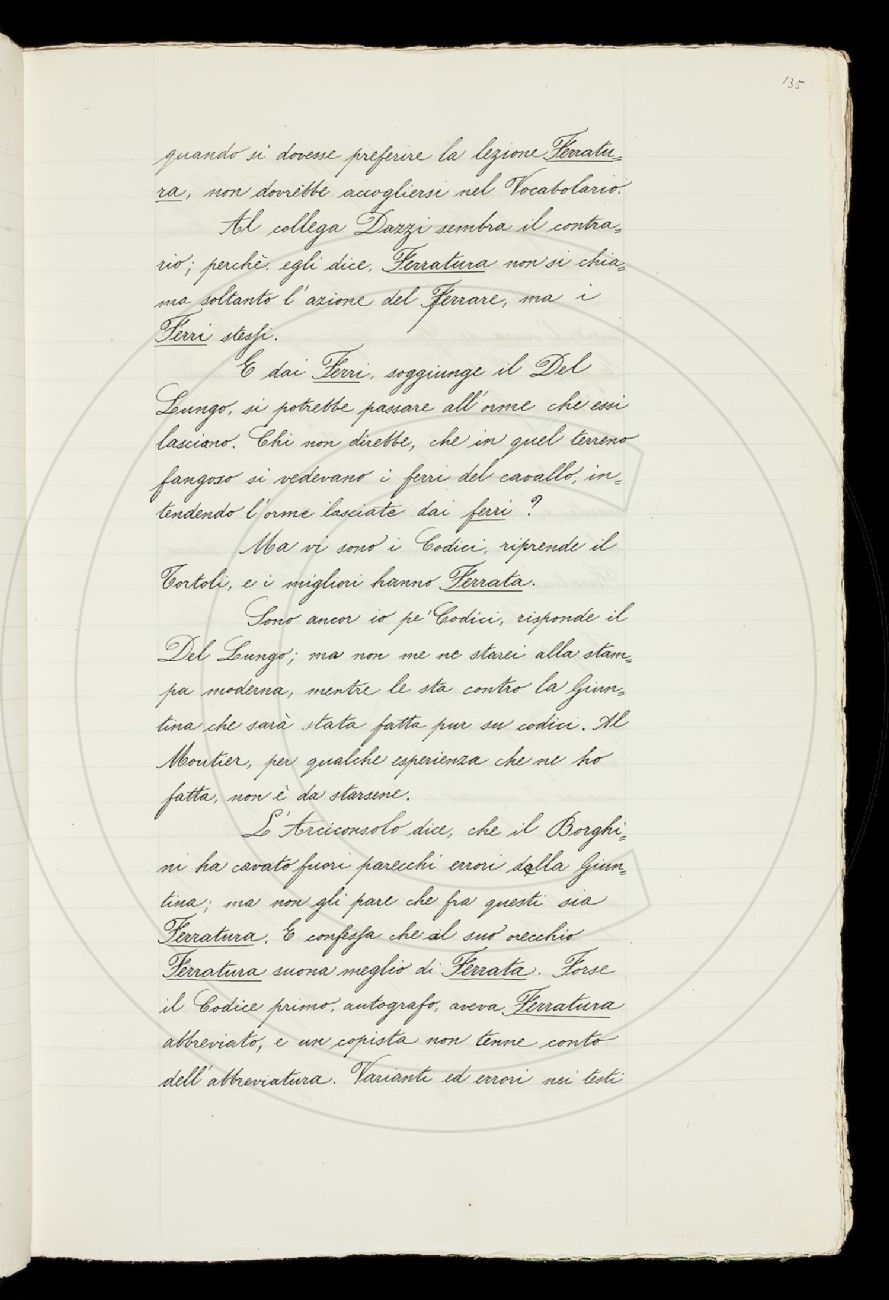 135
quando si dovesse preferire la lezione Ferratu=
ra, non dovrebbe accogliersi nel Vocabolario.
Al collega Dazzi sembra il contra=
rio; perchè, egli dice, Ferratura non si chia=
ma soltanto l'azione del Ferrare, ma i
Ferri stessi.
E dai Ferri, soggiunge il Del
Lungo, si potrebbe passare all'orme che essi
lasciano. Chi non direbbe, che in quel terreno
fangoso si vedevano i ferri del cavallo, in=
tendendo l'orme lasciate dai ferri?
Ma vi sono i Codici, riprende il
Tortoli, e i migliori hanno Ferrata.
Sono ancor io pe' Codici, risponde il
Del Lungo; ma non me ne starei alla stam=
pa moderna, mentre le sta contro la Giun=
tina che sarà stata fatta pur su codici. Al
Moutier, per qualche esperienza che ne ho
fatta, non è da starsene.
L'Arciconsolo dice, che il Borghi=
ni ha cavato fuori parecchi errori dalla Giun=
tina; ma non gli pare che fra questi sia
Ferratura. E confessa che al suo orecchio
Ferratura suona meglio di Ferrata. Forse
il Codice primo, autografo, aveva Ferratura
abbreviato, e un copista non tenne conto
dell'abbreviatura. Varianti ed errori nei testi